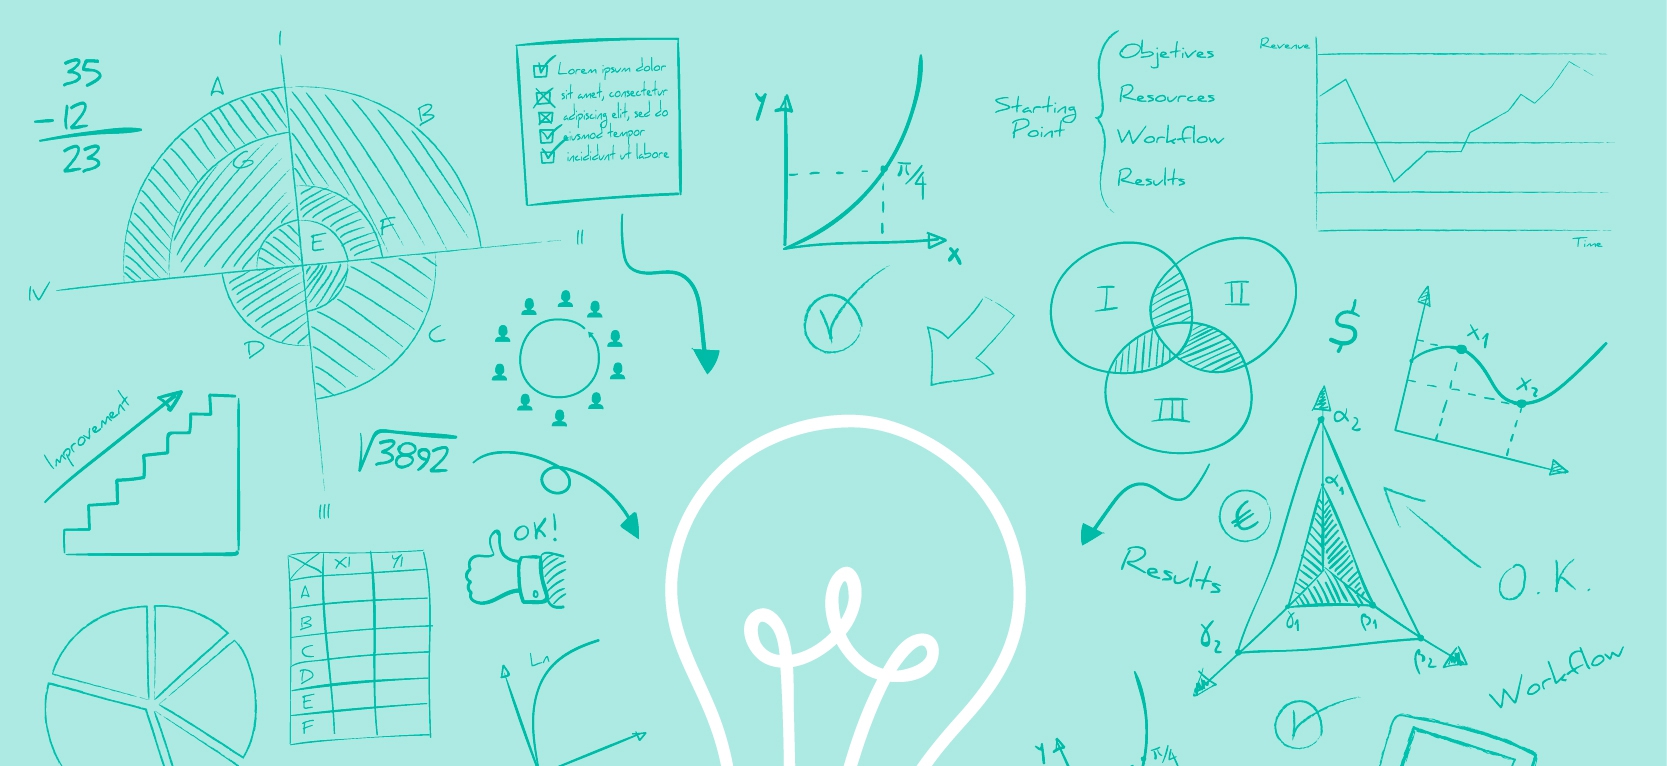 35
-12
23
I
A
B
G
F
E
II
IV
D
C
III
Lorem ipsum dolor
sit amet, consectetur
adipiscing elit, sed do
eiusmod tempor
incididunt ut labore
Y
π/4
X
Starting
Point
Objetives
Resources
Workflow
Results
Revenue
Time
I
II
III
$
X1
X2
Improvement
√3892
OK!
X1
Y1
A
B
C
D
E
F
Ln
€
α2
α1
γ1
β1
γ2
β2
Results
O.K.
Workflow
Y
π/4